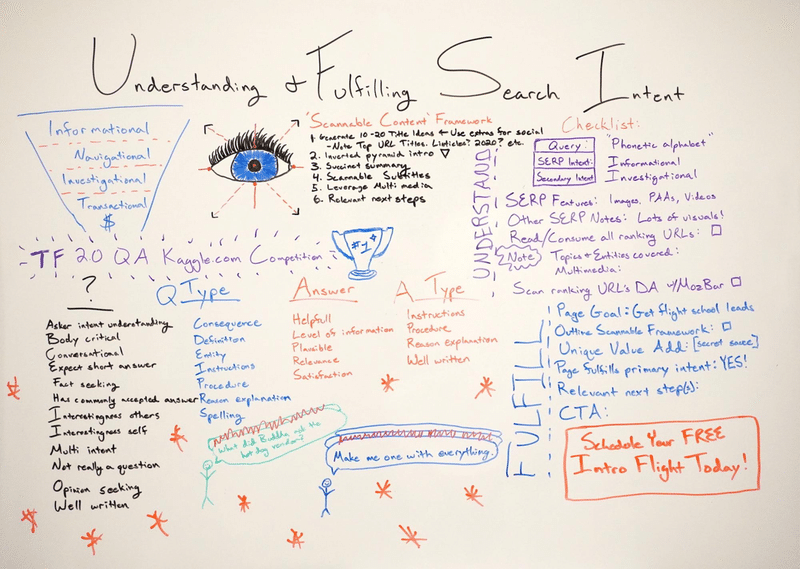 Understanding & Fulfilling Search Intent
Informational
Navigational
Investigational
Transactional
$
"Scannable Content" Framework
1. Generate 10-20 Title Ideas & Use extras for social
- Note Top URL Titles. Listicles? 2020? etc.
2. Inverted pyramid intro
3. Succinct summary
4. Scannable Subtitles
5. Leverage Multi media
6. Relevant next steps
Checklist:
UNDERSTAND
Query: "Phonetic alphabet"
SERP Intent: Informational
Secondary Intent Investigational
SERP Features: Images, PAAs, Videos
Other SERP Notes: Lots of visuals!
Read/Consume all ranking URLs:
Note Topics & Entities covered:
Multimedia:
Scan ranking URL's DA w/MozBar
TF 20 QA Kaggle.com Competition
#1
?
Asker intent understanding
Body critical
Conversational
Expect short answer
Fact seeking
Has commonly accepted answer
Interestingness others
Interestingness self
Multi intent
Not really a question
Opinion seeking
Well written
Q Type
Consequence
Definition
Entity
Instructions
Procedure
Reason explanation
Spelling
Answer
Helpfull
Level of information
Plausible
Relevance
Satisfaction
A Type
Instructions
Procedure
Reason explanation
Well written
What did Buddha ask the
hot dog vendor?
Make me one with everything.
FULFILL
Page Goal: Get flight school leads
Outline Scannable Framework:
Unique Value Add: [secret sauce]
Page fulfills primary intent: YES!
Relevant next step(s):
CTA:
Schedule Your FREE
Intro Flight Today!